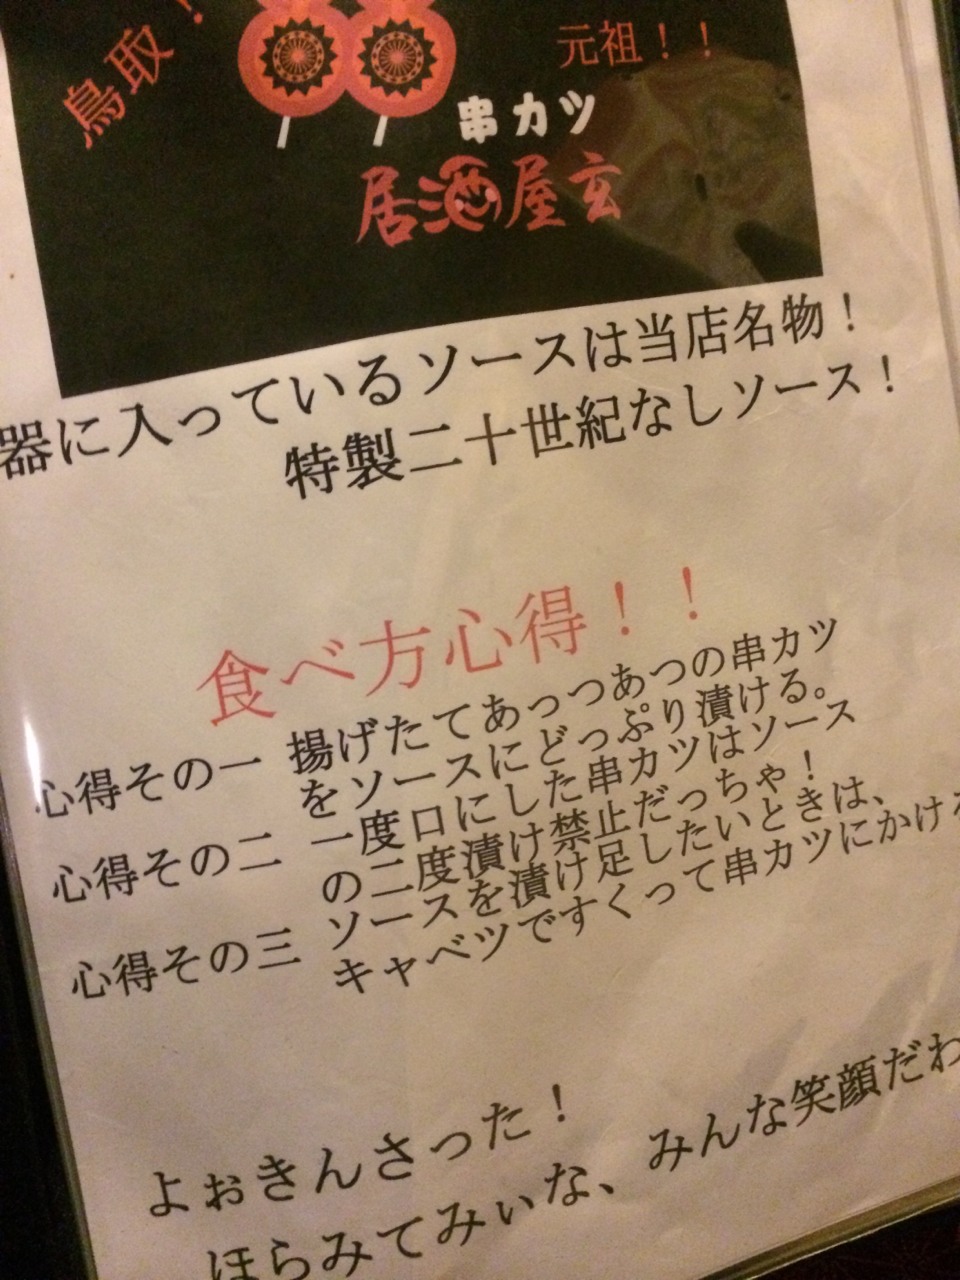 鳥取！
元祖！！
串カツ
居酒屋玄
器に入っているソースは当店名物！
特製二十世紀なしソース！
食べ方心得！！
心得その一 揚げたてあっつあつの串カツ
をソースにどっぷり漬ける。
心得その二 一度口にした串カツはソース
の二度漬け禁止だっちゃ！
心得その三 ソースを漬け足したいときは、
キャベツですくって串カツにかける
よぉきんさった！
ほらみてみぃな、みんな笑顔だわ